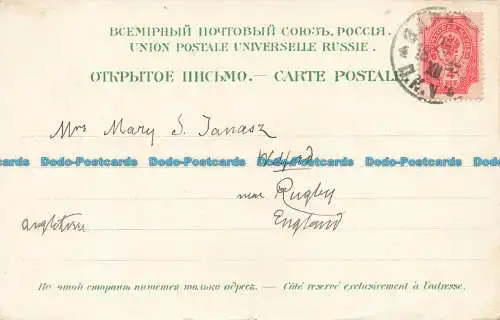 ВСЕМІРНЫЙ ПОЧТОВЫЙ СОЮЗЪ. РОССІЯ.
UNION POSTALE UNIVERSELLE RUSSIE.
ОТКРЫТОЕ ПИСЬМО. — CARTE POSTALE
Mrs Mary S. Tanasz
Dodo-Postcards Dodo-Postcards Dodo-Postcards Dodo-Postcards Dodo-Postcards
near Rugby
England
На этой сторонѣ пишется только адресъ. — Côté reservé exclusivement à l'adresse.